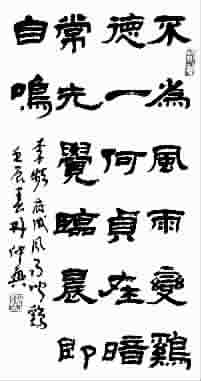 不為風雨變鷄
德一何貞在暗
常先覺臨晨即
自鳴
李頻府試風雨聞鷄
壬辰春